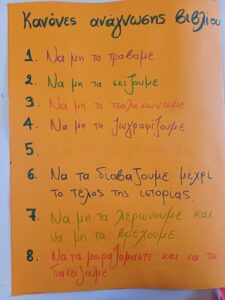 Κανόνες ανάγνωσης βιβλίου
1. Να μη τα τραβάμε
2. Να μη τα σείζουμε.
3. Να μη τα
4. Να μη τα ζωγραφίζουμε.
5.
6. Να τα διοβάζουμε μέχρι
το τέλος της ιστορίας.
7. Να μη τα λερώνουμε και
να μη τα βρέχουμε.
8. Να τα μοιραζόμαστε και να τα
δανείζουμε